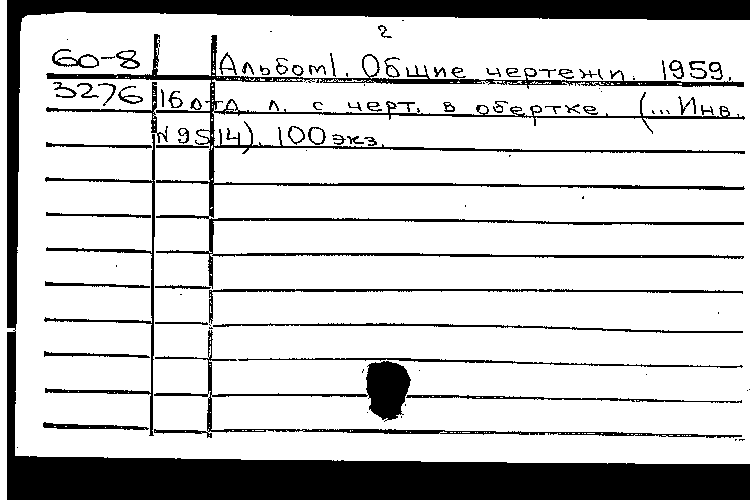 2
60-8 Альбом I. Общие чертежи. 1959.
3276 16 отд. л. с черт. в обертке. (... Инв.
№ 9514). 100 экз.